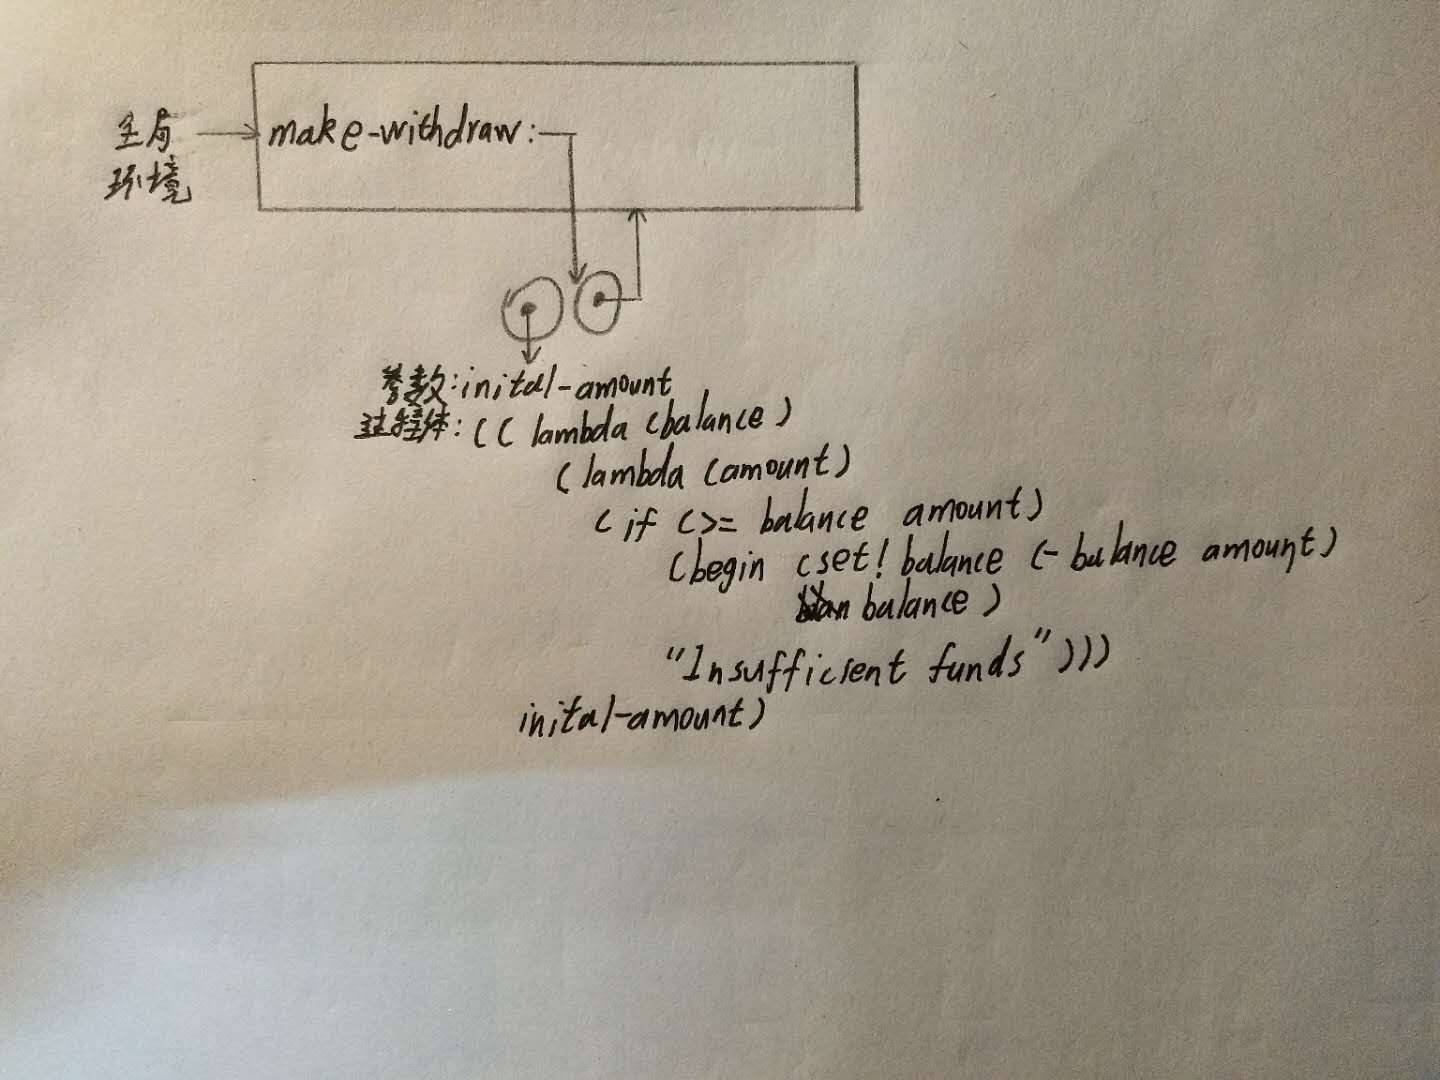 全局
环境
make-withdraw:
参数:inital-amount
过程体:(( lambda (balance)
(lambda (amount)
(if (>= balance amount)
(begin (set! balance (- balance amount)
balance)
"Insufficient funds")))
inital-amount)